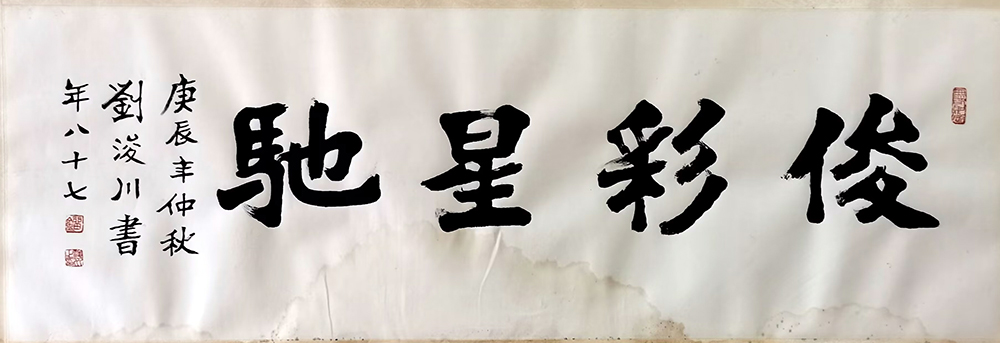 俊彩星馳
庚辰年仲秋
劉浚川書
年八十七